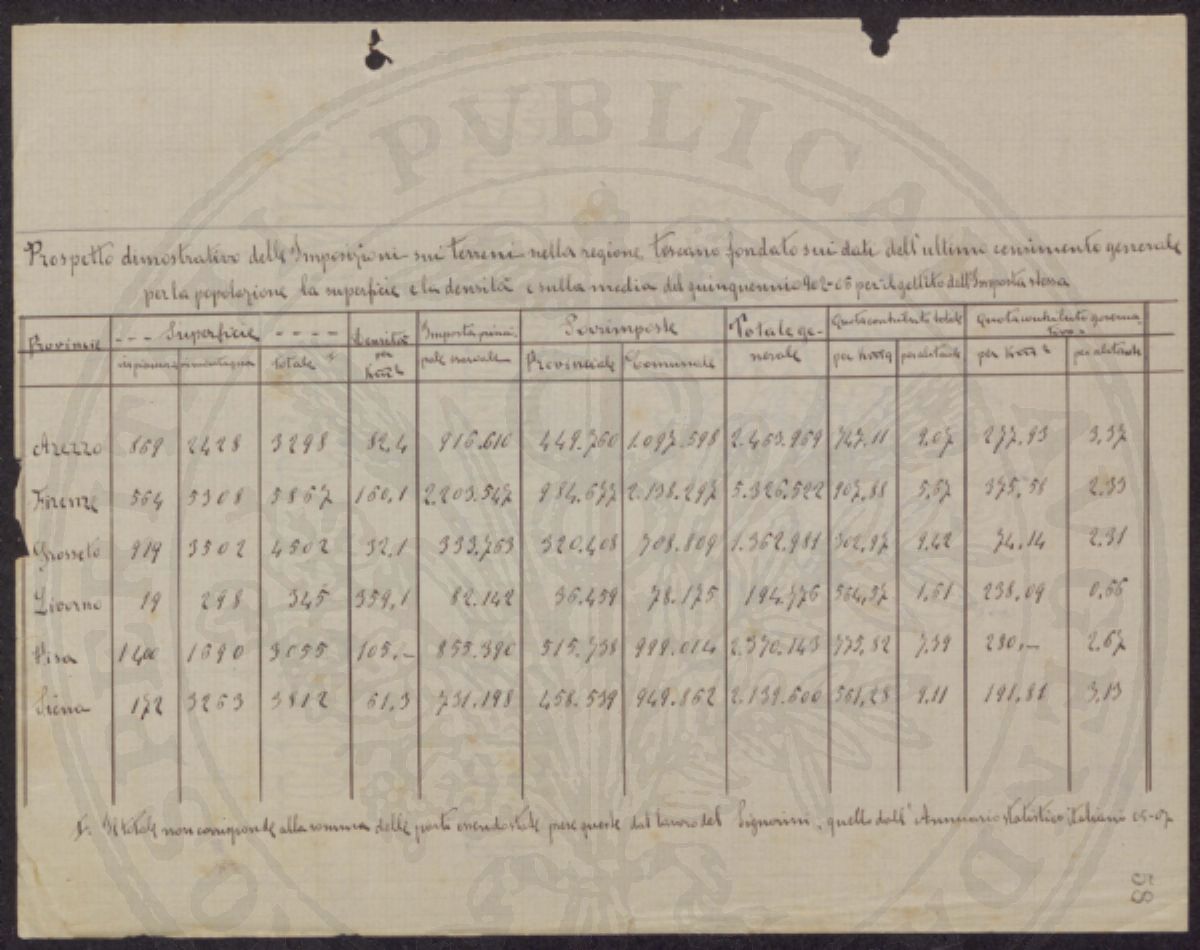 Prospetto dimostrativo delle Imposizioni sui terreni nella regione toscana fondato sui dati dell'ultimo censimento generale
per la popolazione la superficie e la densità e sulla media del quinquennio 902-06 per il gettito dell'Imposta stessa
Provincie --- Superficie ---- Densità per Kmq Imposta principale erariale Sovrimposte Totale generale Quota contributo totale Quota contributo governativo
in pianura in montagna totale * Provinciale Comunale per Kmq per abitante per Kmq per abitante
Arezzo 869 2428 3298 82,4 916.610 449.760 1.097.598 2.463.969 747,11 9,07 277,93 3,37
Firenze 564 5308 5867 160,1 2.203.547 984.677 2.138.297 5.326.522 907,88 5,67 375,58 2.33
Grosseto 919 3502 4502 32,1 333.763 320.408 708.809 1.362.981 302,97 9,42 74,14 2.31
Livorno 19 298 345 359,1 82.142 36.459 78.175 194.776 564,57 1,61 238,09 0,66
Pisa 1400 1690 3055 105,- 855.390 515.738 999.014 2.370.143 775,82 7,39 280,- 2.67
Siena 172 3263 3812 61,3 731.198 458.539 949.862 2.139.600 561,28 9,11 191,81 3,13
*. Il totale non corrisponde alla somma delle parti essendo state prese queste dal lavoro del Signorini, quello dall'Annuario statistico Italiano 05-07
58
PVBLICA